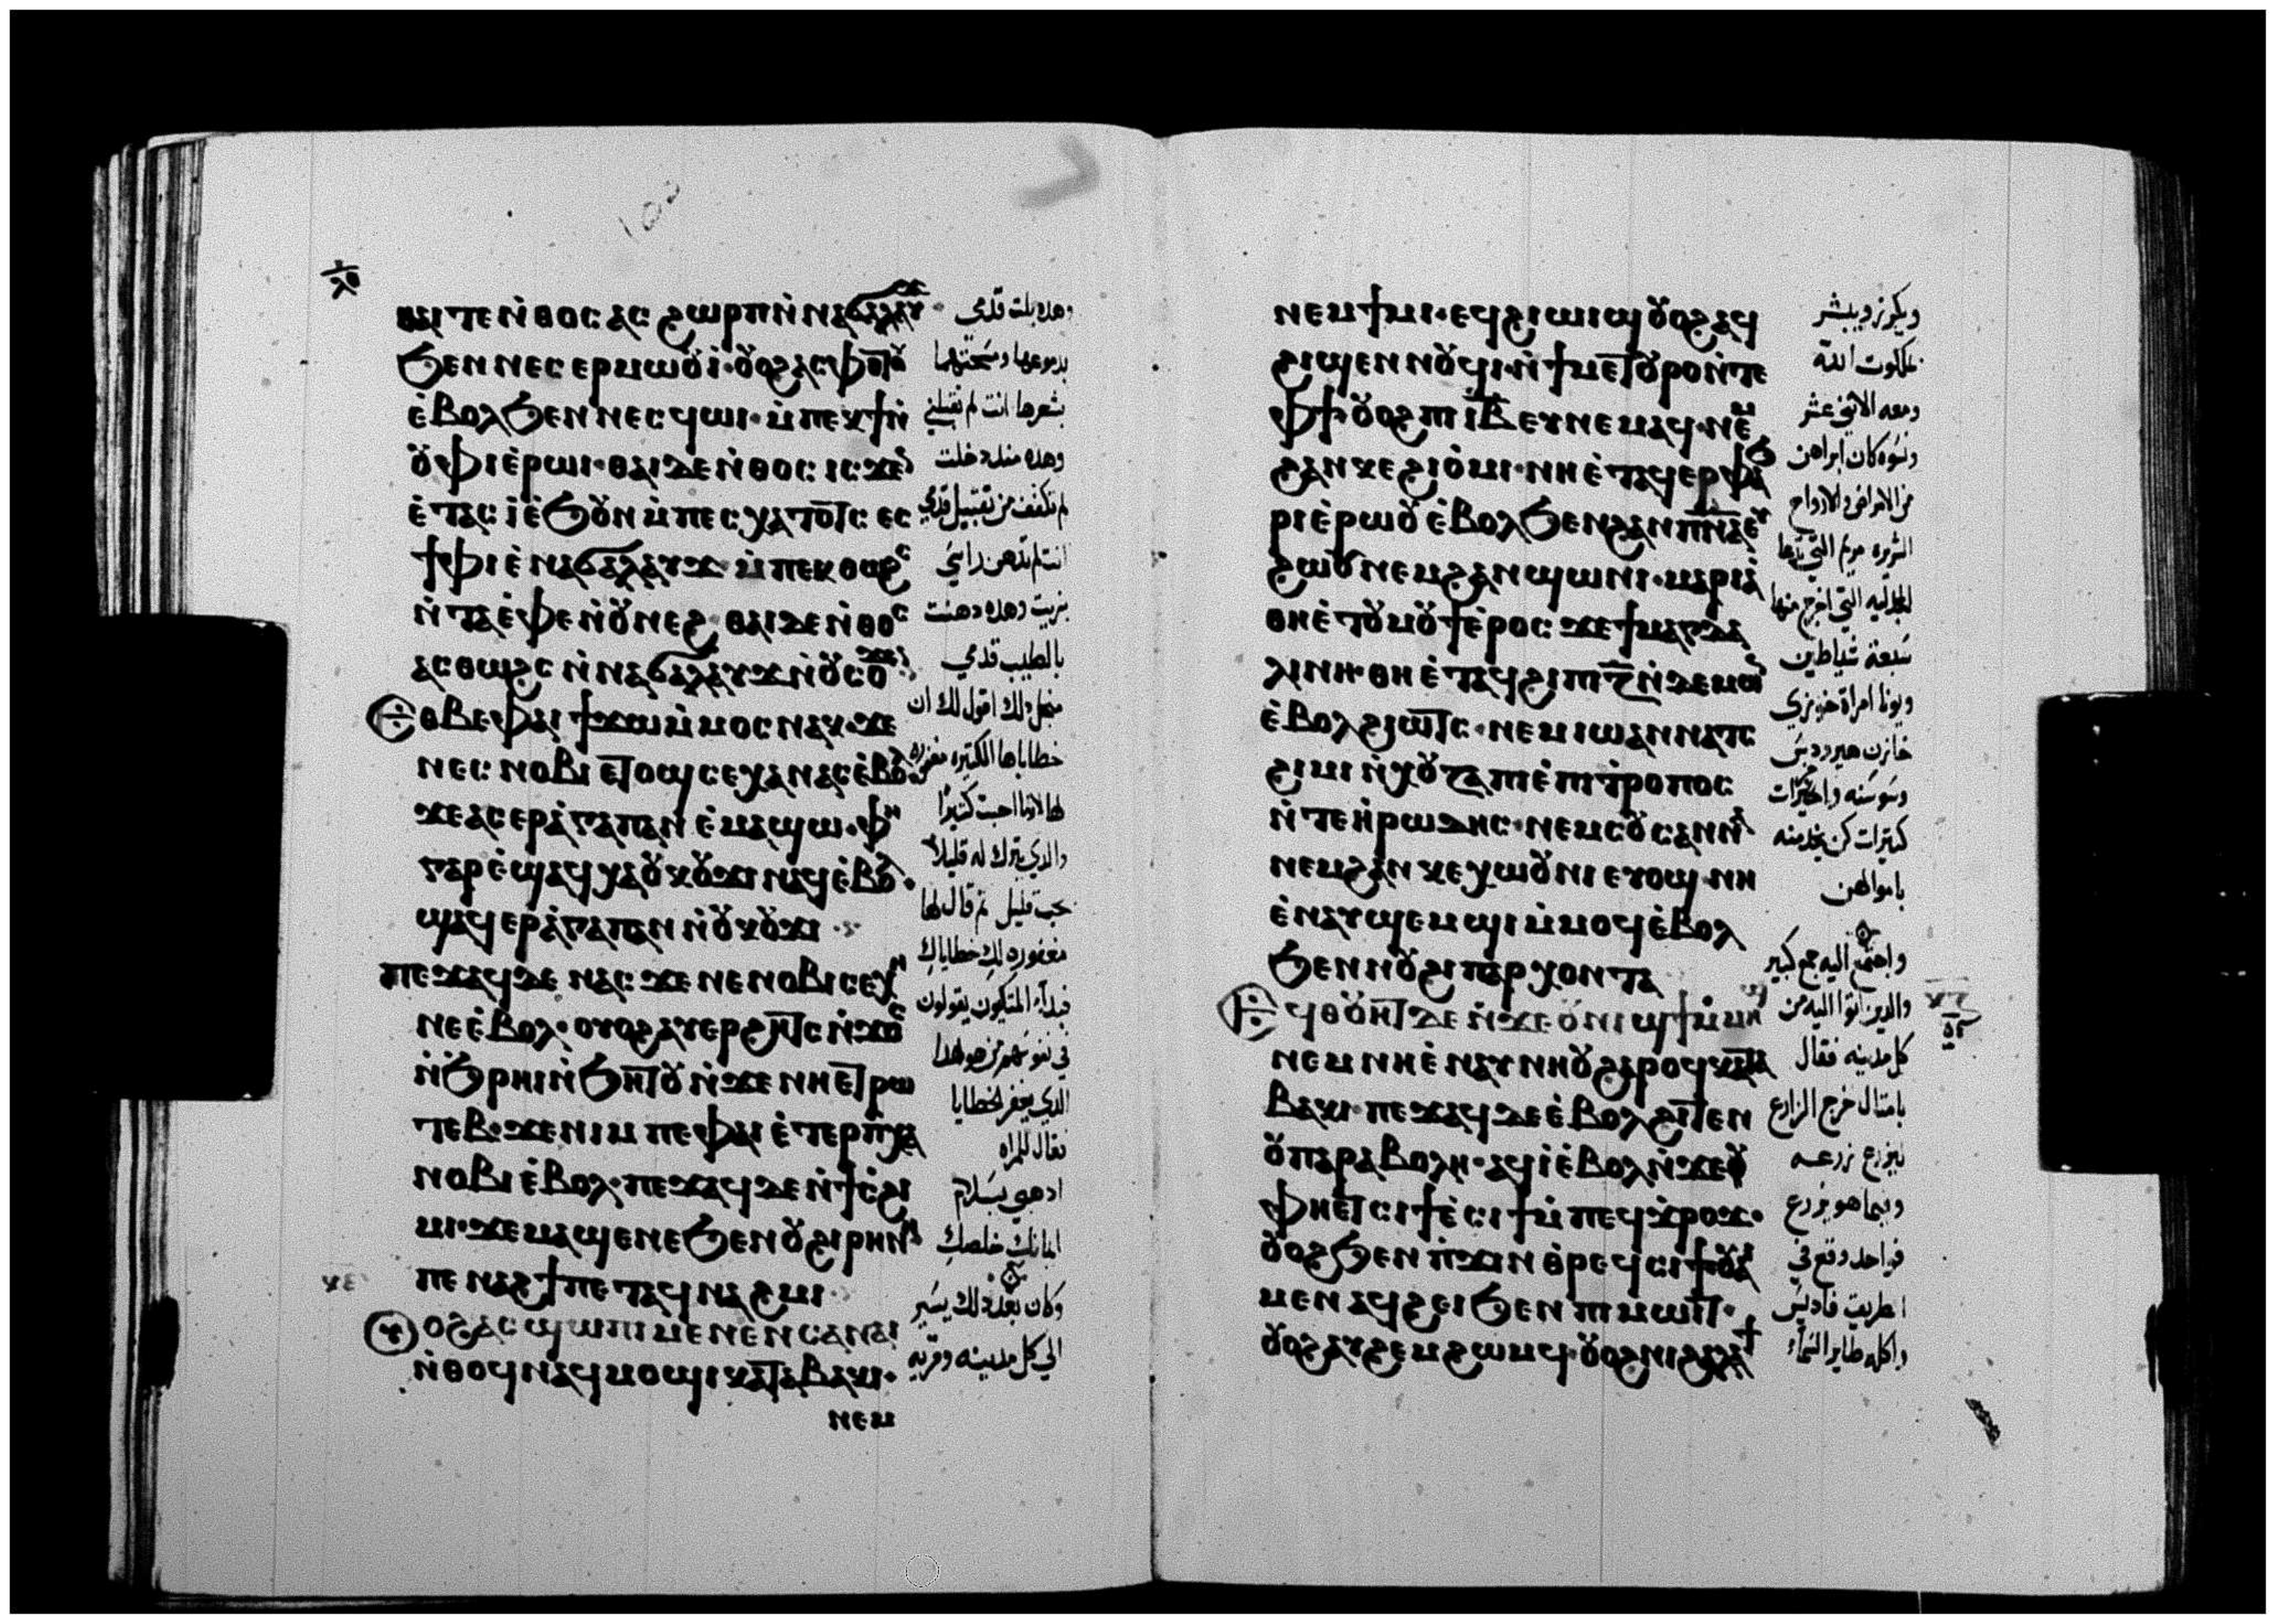 ⲑⲁⲓ ⲧⲉ ⲛ̀ⲑⲟⲥ ⲁⲥϩⲱⲣⲡ ⲛ̀ⲛⲁϭⲁⲗⲁⲩϫ
ϧⲉⲛ ⲛⲉⲥⲉⲣⲙⲱⲟⲩⲓ̀· ⲟⲩⲟϩ ⲁⲥϥⲟⲧⲟⲩ
ⲉ̀ⲃⲟⲗ ϧⲉⲛ ⲛⲉⲥϥⲱⲓ· ⲙ̀ⲡⲉⲕϯ ⲛ̀
ⲟⲩⲫⲓ ⲉ̀ⲣⲱⲓ· ⲑⲁⲓ ⲇⲉ ⲛ̀ⲑⲟⲥ ⲓⲥϫⲉⲛ
ⲉ̀ⲧⲁⲥⲓ̀ ⲉ̀ϧⲟⲩⲛ ⲙ̀ⲡⲉⲥⲭⲁⲧⲟⲧⲥ ⲉⲥ
ϯⲫⲓ ⲉ̀ⲛⲁϭⲁⲗⲁⲩϫ· ⲙ̀ⲡⲉⲕⲑⲱϩⲥ
ⲛ̀ⲧⲁⲁ̀ⲫⲉ ⲛ̀ⲟⲩⲛⲉϩ· ⲑⲁⲓ ⲇⲉ ⲛ̀ⲑⲟⲥ
ⲁⲥⲑⲱϩⲥ ⲛ̀ⲛⲁϭⲁⲗⲁⲩϫ ⲛ̀ⲟⲩⲥⲟϫⲉⲛ
ⲉⲑⲃⲉ ⲫⲁⲓ ϯϫⲱ ⲙ̀ⲙⲟⲥ ⲛⲁⲕ· ϫⲉ
ⲛⲉⲥⲛⲟⲃⲓ ⲉⲧⲟϣ ⲥⲉⲭⲏ ⲛⲁⲥ ⲉ̀ⲃⲟⲗ
ϫⲉ ⲁⲥⲉⲣⲁ̀ⲅⲁⲡⲁⲛ ⲉ̀ⲙⲁϣⲱ· ⲫⲏ
ⲅⲁⲣ ⲉ̀ϣⲁϥⲭⲁ ⲟⲩⲕⲟⲩϫⲓ ⲛⲁϥ ⲉ̀ⲃⲟⲗ·
ϣⲁϥⲉⲣⲁ̀ⲅⲁⲡⲁⲛ ⲛ̀ⲟⲩⲕⲟⲩϫⲓ
ⲡⲉϫⲁϥ ⲇⲉ ⲛⲁⲥ ϫⲉ ⲛⲉⲛⲟⲃⲓ ⲥⲉⲭⲏ
ⲛⲉ ⲉ̀ⲃⲟⲗ· ⲟⲩⲟϩ ⲁⲩⲉⲣϩⲏⲧⲥ ⲛ̀ϫⲟⲥ
ⲛ̀ϧⲣⲏⲓ ⲛ̀ϧⲏⲧⲟⲩ ⲛ̀ϫⲉ ⲛⲏⲉⲧⲣⲱ
ⲧⲉⲃ· ϫⲉ ⲛⲓⲙ ⲡⲉ ⲫⲁⲓ ⲉ̀ⲧⲉⲣⲡⲕⲉⲭⲁ
ⲛⲟⲃⲓ ⲉ̀ⲃⲟⲗ· ⲡⲉϫⲁϥ ⲇⲉ ⲛ̀ϯⲥ̀ϩⲓ
ⲙⲓ· ϫⲉ ⲙⲁϣⲉ ⲛⲉ ϧⲉⲛ ⲟⲩϩⲓⲣⲏⲛⲏ
ⲡⲉⲛⲁϩϯ ⲡⲉⲧⲁϥⲛⲁϩⲙⲓ
ⲟⲩⲟϩ ⲁⲥϣⲱⲡⲓ ⲙⲉⲛⲉⲛⲥⲁ ⲛⲁⲓ
ⲛ̀ⲑⲟϥ ⲛⲁϥⲙⲟϣⲓ ⲕⲁⲧⲁ ⲃⲁⲕⲓ·
ⲛⲉⲙ
وهذه بلت قدمي
بدموعها ومسحتهما
بشعرها انت لم تقبلني
وهذه منذ دخلت
لم تكفف من تقبيل قدمي
انت لم تدهن راسي
بزيت وهذه دهنت
بالطيب قدمي
من اجل ذلك اقول لك ان
خطاياها الكثيره مغفوره
لها لانها احبت كثيرا
والذي يترك له قليلا
يحب قليل ثم قال لها
مغفوره لكِ خطاياكِ
فبدأ المتكيون يقولون
في نفوسهم من هو هذا
الذي يغفر الخطايا
فقال للمراه
اذهبي بسلام
ايمانك خلصكِ
وكان بعد ذلك يسير
الي كل مدينه وقريه
ⲛⲉⲙ ϯⲙⲓ· ⲉϥϩⲓⲱⲓϣ ⲟⲩⲟϩ ⲁϥ
ϩⲓϣⲉⲛⲛⲟⲩϥⲓ· ⲛ̀ϯⲙⲉⲧⲟⲩⲣⲟ ⲛ̀ⲧⲉ
ⲫϯ· ⲟⲩⲟϩ ⲡⲓⲓⲃ ⲉⲩⲛⲉⲙⲁϥ· ⲛⲉⲙ
ϩⲁⲛⲕⲉϩⲓⲟ̀ⲙⲓ· ⲛⲏ ⲉ̀ⲧⲁϥⲉⲣⲫⲁϧ
ⲣⲓ ⲉ̀ⲣⲱⲟⲩ ⲉ̀ⲃⲟⲗ ϧⲉⲛ ϩⲁⲛⲡⲛⲁ ⲉⲩ
ϩⲱⲟⲩ ⲛⲉⲙ ϩⲁⲛϣⲱⲛⲓ· ⲙⲁⲣⲓⲁ
ⲑⲏ ⲉ̀ⲧⲟⲩⲙⲟⲩϯ ⲉ̀ⲣⲟⲥ ϫⲉ ϯⲙⲁⲅⲇⲁ
ⲗⲓⲛⲏ· ⲑⲏ ⲉ̀ⲧⲁϥϩⲓ ⲡⲓⲍ ⲛ̀ⲇⲉⲙⲱⲛ
ⲉ̀ⲃⲟⲗ ϩⲓⲱⲧⲥ· ⲛⲉⲙ ⲓⲱⲁⲛⲛⲁ ⲧⲥ
ϩⲓⲙⲓ ⲛ̀ⲭⲟⲩⲍⲁ ⲡⲓⲉ̀ⲡⲓⲧⲣⲟⲡⲟⲥ
ⲛ̀ⲧⲉ ⲏ̀ⲣⲱⲇⲏⲥ· ⲛⲉⲙ ⲥⲟⲩⲥⲁⲛⲛⲁ
ⲛⲉⲙ ϩⲁⲛⲕⲉⲭⲱⲟⲩⲛⲓ ⲉⲩⲟϣ· ⲛⲏ
ⲉ̀ⲛⲁⲩϣⲉⲙϣⲓ ⲙ̀ⲙⲟϥ ⲉ̀ⲃⲟⲗ
ϧⲉⲛ ⲛⲟⲩϩⲓⲡⲁⲣⲭⲟⲛⲧⲁ
ⲉϥⲑⲟⲩⲏⲧ ⲇⲉ ⲛ̀ϫⲉ ⲟⲩⲛⲓϣϯ ⲙ̀ⲙⲏϣ
ⲛⲉⲙ ⲛⲏ ⲉ̀ⲛⲁⲩⲛⲏⲟⲩ ϩⲁⲣⲟϥ ⲕⲁⲧⲁ
ⲃⲁⲕⲓ· ⲡⲉϫⲁϥ ⲇⲉ ⲉ̀ⲃⲟⲗ ϩⲓⲧⲉⲛ
ⲟⲩⲡⲁⲣⲁⲃⲟⲗⲏ· ⲁϥⲓ̀ ⲉ̀ⲃⲟⲗ ⲛ̀ϫⲉ
ⲫⲏⲉⲧⲥⲓϯ ⲉ̀ⲥⲓϯ ⲙ̀ⲡⲉϥϫⲣⲟϫ·
ⲟⲩⲟϩ ϧⲉⲛ ⲡ̀ϫⲓⲛⲑⲣⲉϥⲥⲓϯ ⲟⲩⲁⲓ
ⲙⲉⲛ ⲁϥϩⲉⲓ ϧⲉⲛ ⲡⲓⲙⲱⲓⲧ·
ⲟⲩⲟϩ ⲁⲩϩⲉⲙϩⲱⲙϥ· ⲟⲩⲟϩ ⲛⲓϩⲁⲗⲁϯ
ويكرز ويبشر
بملكوت الله
ومعه الاثني عشر
ونسوه كان ابراهن
من الامراض والارواح
الشريره مريم التي تدعا
المجدليه التي اخرج منها
سبعة شياطين
ويونا امراة خوزي
خازن هيرودس
وسوسنه واخرات
كثيرات كن يخدمنه
باموالهن
واجتمع اليه جمع كبير
والذين اتوا اليه من
كل مدينه فقال
بامثال خرج الزارع
ليزرع زرعه
وبيما هو يزرع
فواحد وقع في
الطريق فاديس
واكله طاير السماء